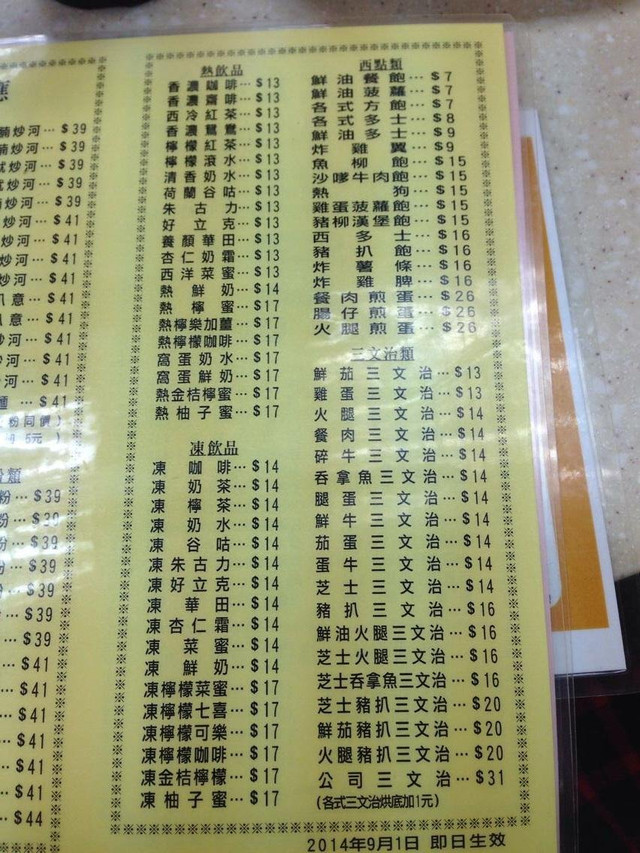 熱飲品
香濃咖啡…$13
香濃齋啡…$13
西冷紅茶…$13
香濃鴛鴦…$13
檸檬紅茶…$13
檸檬滾水…$13
清香奶水…$13
荷蘭谷咕…$13
朱古力…$13
好立克…$13
養顏華田…$13
杏仁奶霜…$13
西洋菜蜜…$13
熱鮮奶…$14
熱檸蜜…$17
熱檸樂加薑…$17
熱檸檬咖啡…$17
窩蛋奶水…$17
窩蛋鮮奶…$17
熱金桔檸蜜…$17
熱柚子蜜…$17
凍飲品
凍咖啡…$14
凍奶茶…$14
凍檸茶…$14
凍奶水…$14
凍谷咕…$14
凍朱古力…$14
凍好立克…$14
凍華田…$14
凍杏仁霜…$14
凍菜蜜…$14
凍鮮奶…$14
凍檸檬菜蜜…$17
凍檸檬七喜…$17
凍檸檬可樂…$17
凍檸檬咖啡…$17
凍金桔檸檬…$17
凍柚子蜜…$17
西點類
鮮油餐飽…$7
鮮油菠蘿…$7
各式方飽…$7
各式多士…$8
鮮油多士…$9
炸雞翼…$9
魚柳飽…$15
沙嗲牛肉飽…$15
熱狗…$15
雞蛋菠蘿飽…$15
豬柳漢堡飽…$15
西多士…$16
豬扒飽…$16
炸薯條…$16
炸雞脾…$16
餐肉煎蛋…$26
腸仔煎蛋…$26
火腿煎蛋…$26
三文治類
鮮茄三文治…$13
雞蛋三文治…$13
火腿三文治…$14
餐肉三文治…$14
碎牛三文治…$14
吞拿魚三文治…$14
腿蛋三文治…$14
鮮牛三文治…$14
茄蛋三文治…$14
蛋牛三文治…$14
芝士三文治…$14
豬扒三文治…$16
鮮油火腿三文治…$16
芝士火腿三文治…$16
芝士吞拿魚三文治…$16
芝士豬扒三文治…$20
鮮茄豬扒三文治…$20
火腿豬扒三文治…$20
公司三文治…$31
(各式三文治烘底加1元)
2014年9月1日 即日生效
炒河…$39
炒河…$39
炒河…$39
炒河…$39
炒河…$39
炒河…$41
炒河…$41
炒河…$41
炒河…$41
意…$41
意…$41
河…$41
河…$41
…$41
粉同價)
5元)
類
粉…$39
粉…$39
粉…$39
粉…$39
…$39
…$39
…$39
…$41
…$41
…$41
…$41
…$41
…$41
…$44